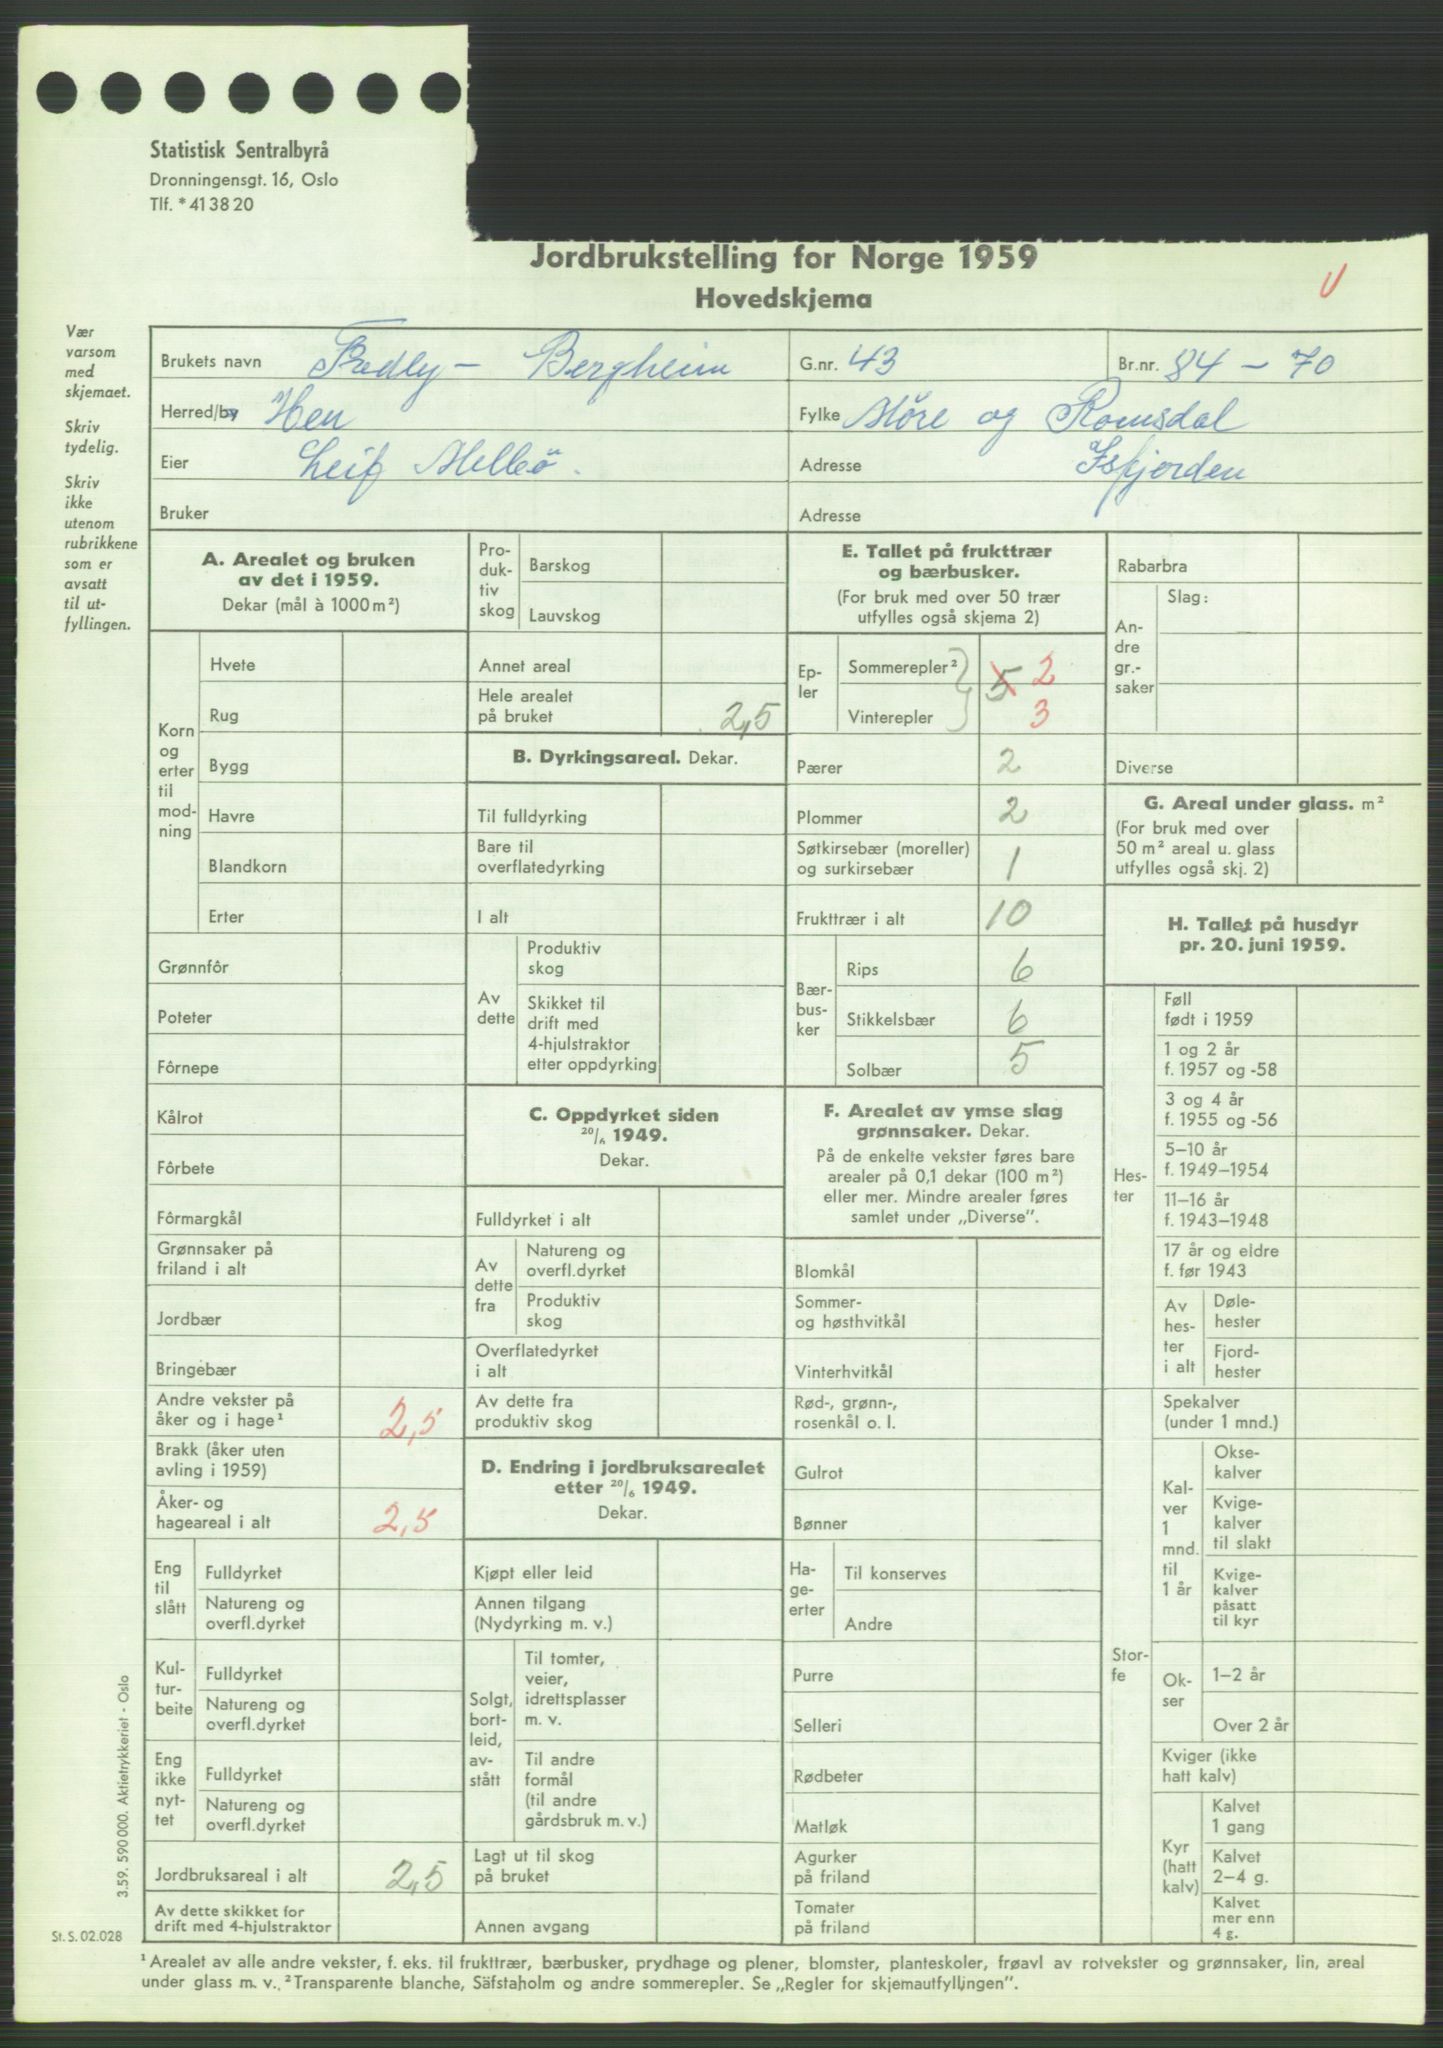 Statistisk Sentralbyrå
Dronningensgt. 16, Oslo
Tlf. * 41 38 20
Jordbrukstelling for Norge 1959
Hovedskjema
V
Vær
varsom
med
skjemaet.
Skriv
tydelig.
Skriv
ikke
utenom
rubrikkene
som er
avsatt
til ut-
fyllingen.
Brukets navn Bergheim G.nr. 43 Br.nr. 84 – 70
Herred/by Hen Fylke Møre og Romsdal
Eier Leif Adresse Isfjorden
Bruker Adresse
A. Arealet og bruken
av det i 1959.
Dekar (mål à 1000 m²)
Korn
og
erter
til
mod-
ning
Hvete
Rug
Bygg
Havre
Blandkorn
Erter
Grønnfôr
Poteter
Fôrnepe
Kålrot
Fôrbete
Fôrmargkål
Grønnsaker på
friland i alt
Jordbær
Bringebær
Andre vekster på
åker og i hage¹ 2,5
Brakk (åker uten
avling i 1959)
Åker- og
hageareal i alt 2,5
Eng
til
slått
Fulldyrket
Natureng og
overfl.dyrket
Kul-
tur-
beite
Fulldyrket
Natureng og
overfl.dyrket
Eng
ikke
nyt-
tet
Fulldyrket
Natureng og
overfl.dyrket
Jordbruksareal i alt 2,5
Av dette skikket for
drift med 4-hjulstraktor
Pro-
duk-
tiv
skog
Barskog
Lauvskog
Annet areal
Hele arealet
på bruket 2,5
B. Dyrkingsareal. Dekar.
Til fulldyrking
Bare til
overflatedyrking
I alt
Av
dette
Produktiv
skog
Skikket til
drift med
4-hjulstraktor
etter oppdyrking
C. Oppdyrket siden
20/6 1949.
Dekar.
Fulldyrket i alt
Av
dette
fra
Natureng og
overfl.dyrket
Produktiv
skog
Overflatedyrket
i alt
Av dette fra
produktiv skog
D. Endring i jordbruksarealet
etter 20/6 1949.
Dekar.
Kjøpt eller leid
Annen tilgang
(Nydyrking m. v.)
Solgt,
bort-
leid,
av-
stått
Til tomter,
veier,
idrettsplasser
m. v.
Til andre
formål
(til andre
gårdsbruk m. v.)
Lagt ut til skog
på bruket
Annen avgang
E. Tallet på frukttrær
og bærbusker.
(For bruk med over 50 trær
utfylles også skjema 2)
Ep-
ler
Sommerepler² 5 2
Vinterepler 3
Pærer 2
Plommer 2
Søtkirsebær (moreller)
og surkirsebær 1
Frukttrær i alt 10
Bær-
bus-
ker
Rips 6
Stikkelsbær 6
Solbær 5
F. Arealet av ymse slag
grønnsaker. Dekar.
På de enkelte vekster føres bare
arealer på 0,1 dekar (100 m²)
eller mer. Mindre arealer føres
samlet under „Diverse”.
Blomkål
Sommer-
og høsthvitkål
Vinterhvitkål
Rød-, grønn-,
rosenkål o. l.
Gulrot
Bønner
Ha-
ge-
erter
Til konserves
Andre
Purre
Selleri
Rødbeter
Matløk
Agurker
på friland
Tomater
på friland
Rabarbra
An-
dre
gr.-
saker
Slag:
Diverse
G. Areal under glass. m²
(For bruk med over
50 m² areal u. glass
utfylles også skj. 2)
H. Tallet på husdyr
pr. 20. juni 1959.
Hes-
ter
Føll
født i 1959
1 og 2 år
f. 1957 og -58
3 og 4 år
f. 1955 og -56
5–10 år
f. 1949–1954
11–16 år
f. 1943–1948
17 år og eldre
f. før 1943
Av
hes-
ter
i alt
Døle-
hester
Fjord-
hester
Stor-
fe
Spekalver
(under 1 mnd.)
Kal-
ver
1
mnd.
til
1 år
Okse-
kalver
Kvige-
kalver
til slakt
Kvige-
kalver
påsatt
til kyr
Ok-
ser
1–2 år
Over 2 år
Kviger (ikke
hatt kalv)
Kyr
(hatt
kalv)
Kalvet
1 gang
Kalvet
2–4 g.
Kalvet
mer enn
4 g.
3.59. 590 000. Aktietrykkeriet - Oslo
St. S. 02.028
¹ Arealet av alle andre vekster, f. eks. til frukttrær, bærbusker, prydhage og plener, blomster, planteskoler, frøavl av rotvekster og grønnsaker, lin, areal
under glass m. v. ² Transparente blanche, Säfstaholm og andre sommerepler. Se „Regler for skjemautfyllingen”.